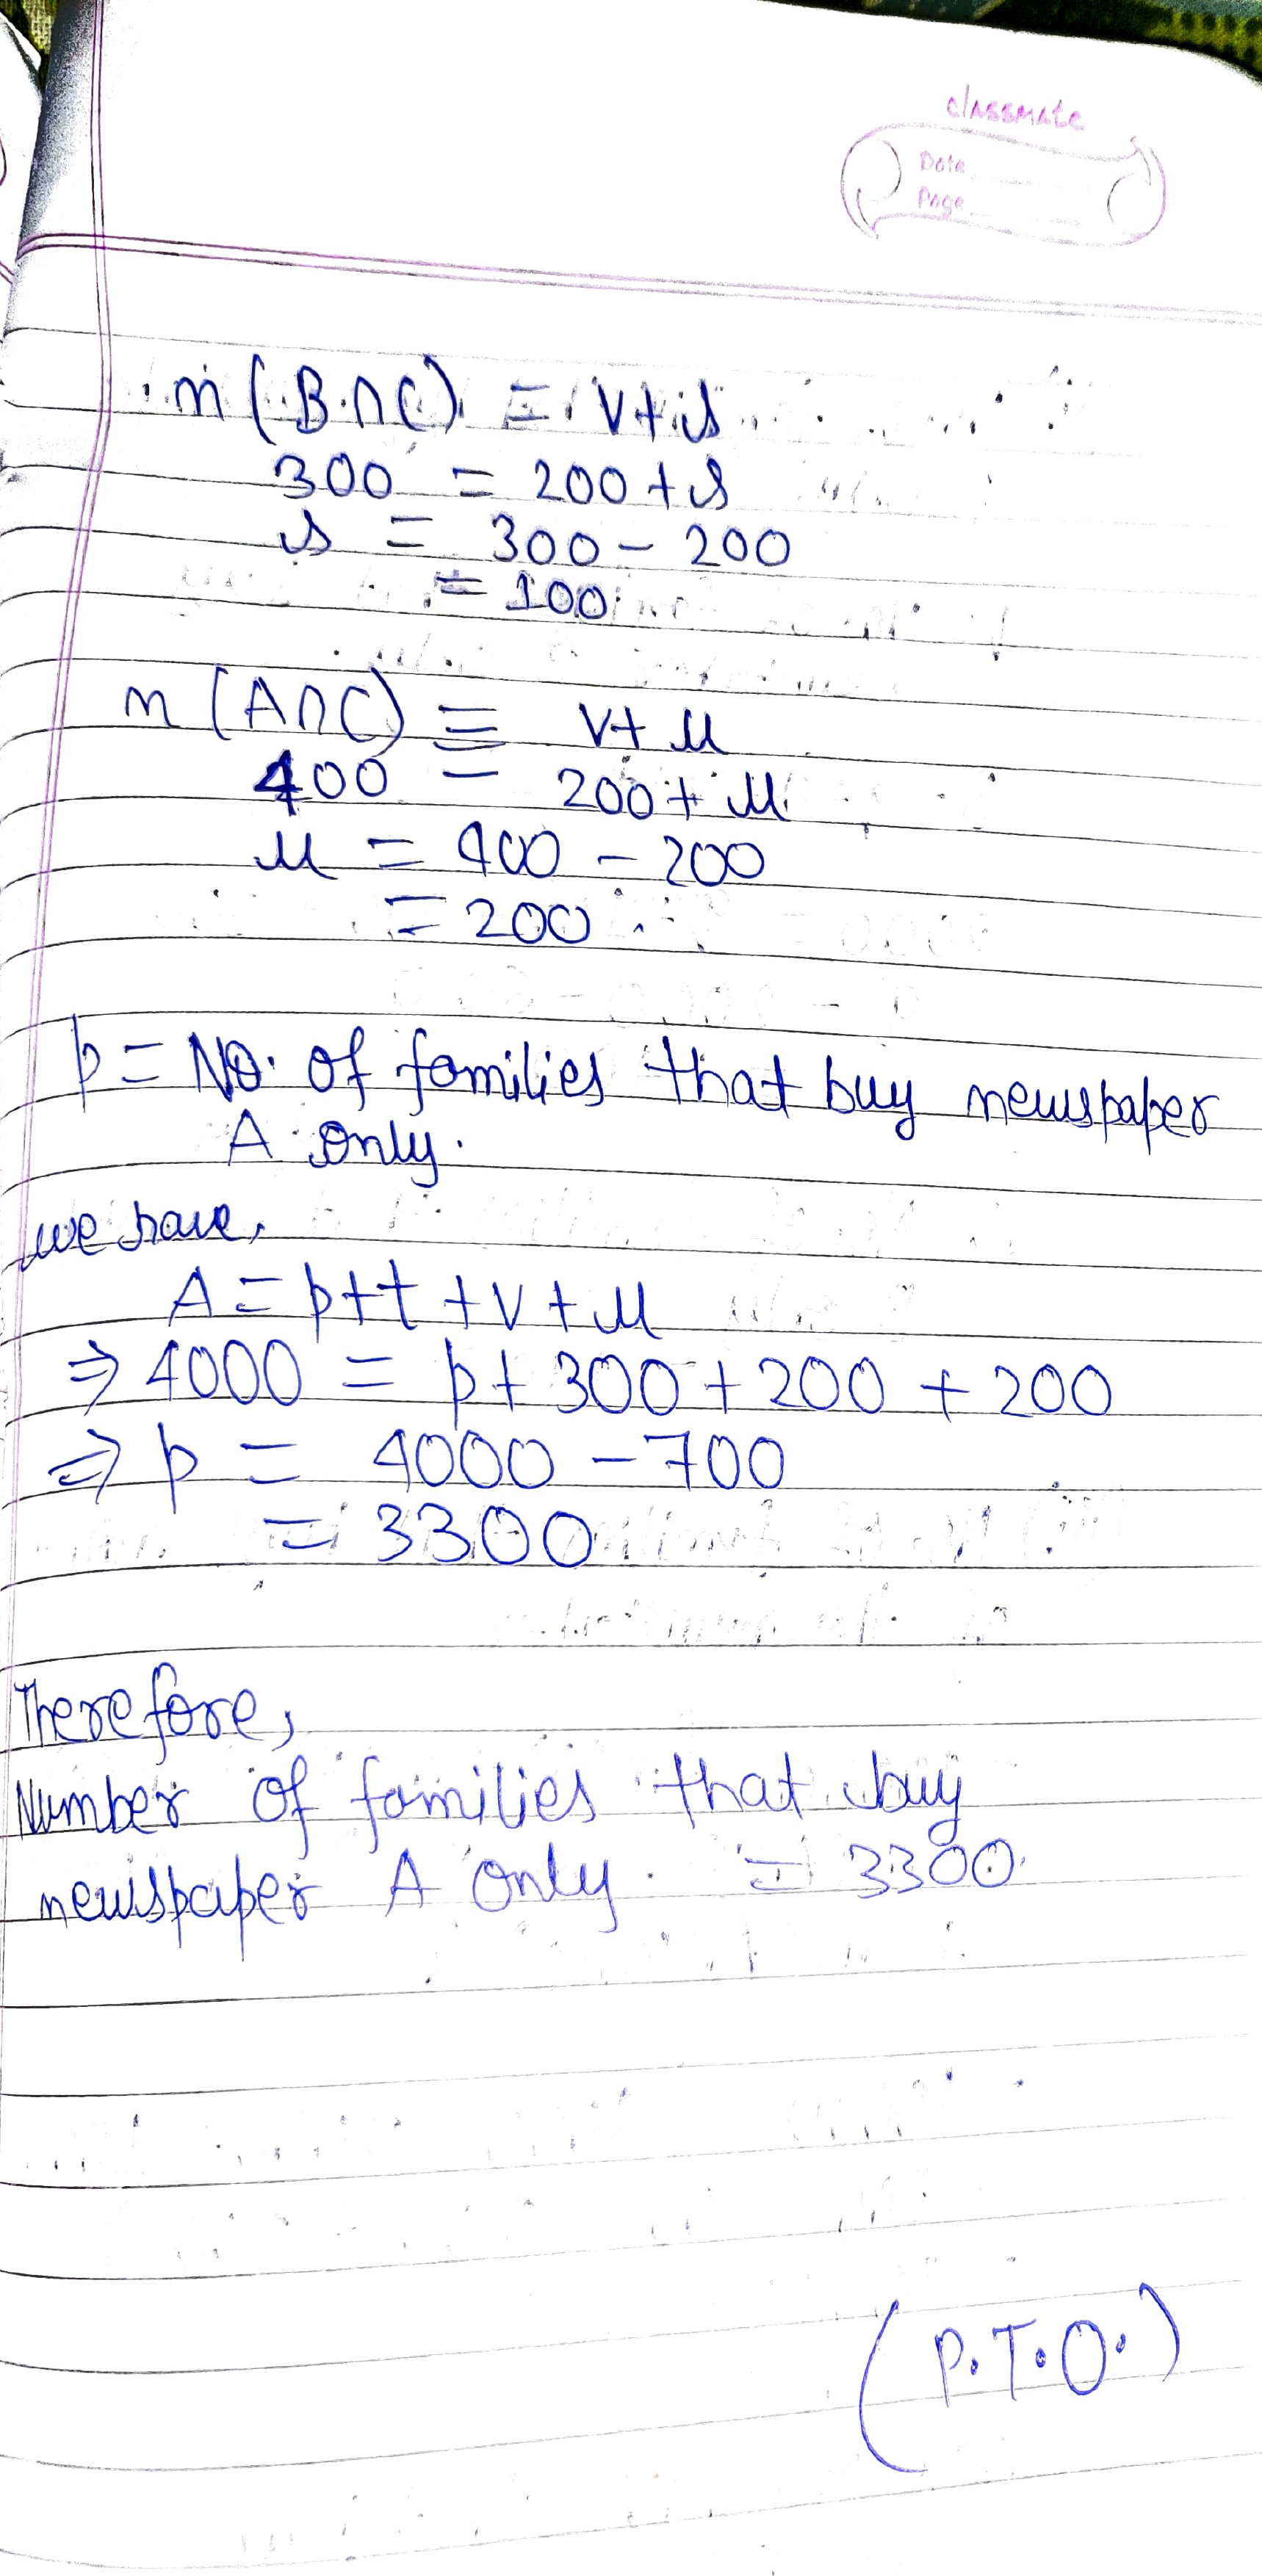 classmate
Date
Page
n(B∩C) = V+s
300 = 200+s
s = 300-200
= 100
n(A∩C) = V+u
400 = 200+u
u = 400-200
= 200
p = No. of families that buy newspaper
A only.
we have,
A = p+t+v+u
⇒ 4000 = p+300+200+200
⇒ p = 4000-700
= 3300
Therefore,
Number of families that buy
newspaper A only. = 3300.
(P.T.O.)